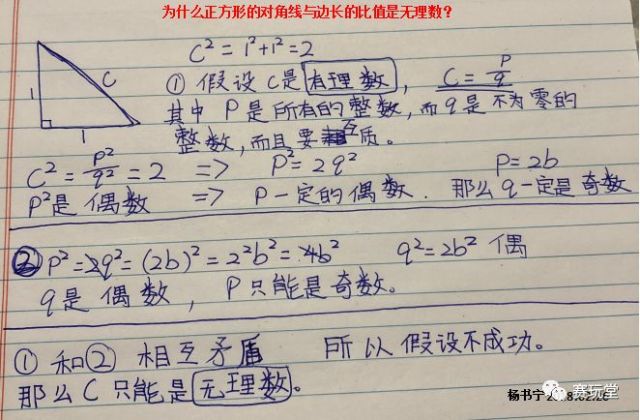 为什么正方形的对角线与边长的比值是无理数?
C² = 1²+1² = 2
C
1
1
① 假设C是有理数, C = P/q
其中 P是所有的整数, 而q是不为零的
整数, 而且要互质。
C² = P²/q² = 2 => P² = 2q² P = 2b
P²是偶数 => P一定的偶数. 那么q一定是奇数
② P² = 2q² = (2b)² = 2²b² = 4b² q² = 2b² 偶
q是偶数, P只能是奇数。
① 和② 相互矛盾 所以假设不成功。
那么C只能是无理数。
杨书宁
赛玩堂